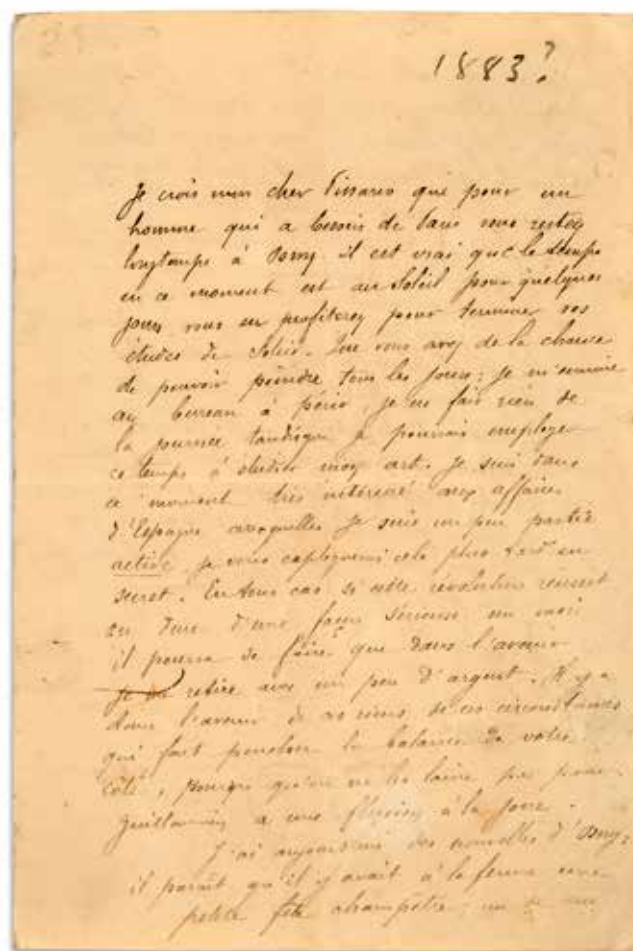 1883?
Je crois mon cher Pissarro que pour un
homme qui a besoin de vous restez
longtemps à Osny il est vrai que le temps
en ce moment est au Soleil pour quelques
jours vous en profiterez pour terminer vos
études de Soleil. Que vous avez de la chance
de pouvoir peindre tous les jours; je m'ennuie
au bureau à je ne fais rien de
la journée tandisque je pourrais employer
ce temps à étudier mon art. Je suis dans
ce moment très intéressé aux affaires
d'Espagne auxquelles je suis un peu partie
active je vous expliquerai cela plus tard en
secret. En tous cas si cette révolution reussit
et dure d'une façon sérieuse un mois
il pourra se faire que dans l'avenir
je me retire avec un peu d'argent. Il y a
dans l'avenir de ces circonstances
qui fait pencher la balance de votre
côté, pourvu qu'on ne les laisse pas
Guillaumin a une fluxion à la joue.
J'ai aujourd'hui des nouvelles d'Osny;
il paraît qu'il y avait à la ferme une
petite fête champêtre;